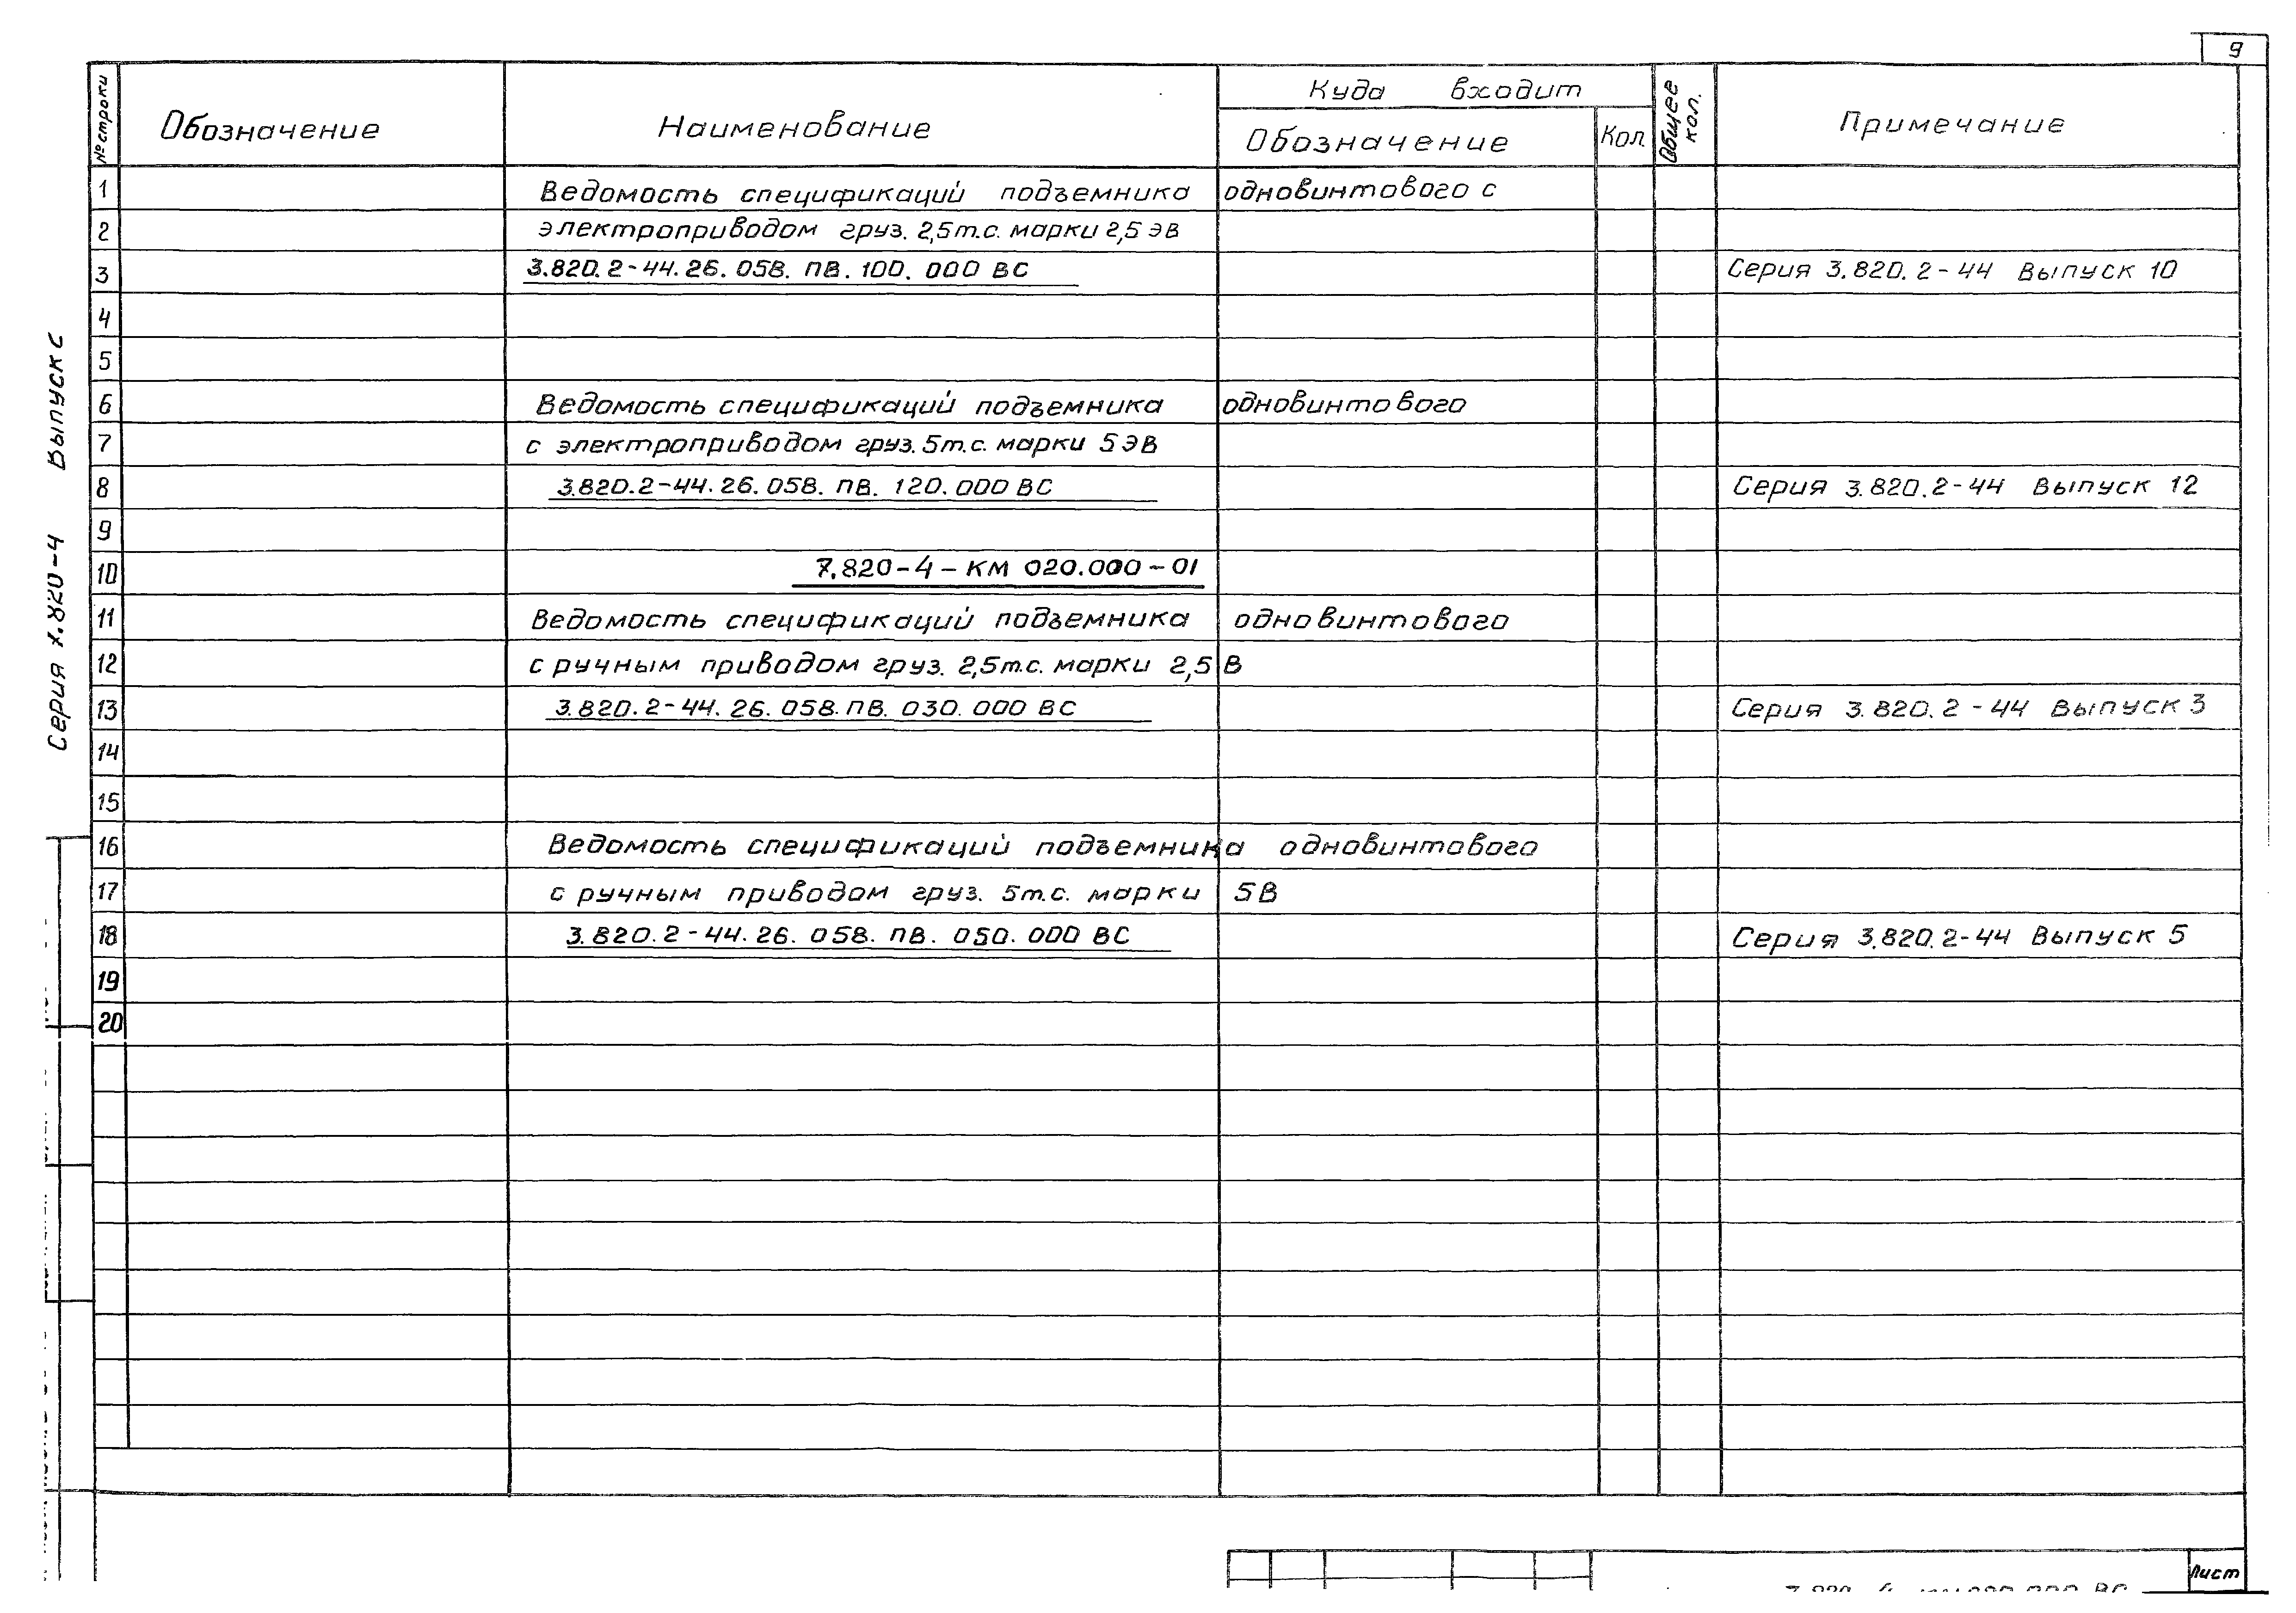 9
№ строки
Обозначение
Наименование
Куда входит
Обозначение
Кол.
Общее кол.
Примечание
1 Ведомость спецификаций подъемника одновинтового с
2 электроприводом груз. 2,5т.с. марки 2,5 ЭВ
3 3.820.2-44.26.058.ПВ.100.000 ВС Серия 3.820.2-44 Выпуск 10
4
5
6 Ведомость спецификаций подъемника одновинтового
7 с электроприводом груз. 5т.с. марки 5 ЭВ
8 3.820.2-44.26.058.ПВ.120.000 ВС Серия 3.820.2-44 Выпуск 12
9
10 7.820-4-КМ 020.000-01
11 Ведомость спецификаций подъемника одновинтового
12 с ручным приводом груз. 2,5т.с. марки 2,5 В
13 3.820.2-44.26.058.ПВ.030.000 ВС Серия 3.820.2-44 Выпуск 3
14
15
16 Ведомость спецификаций подъемника одновинтового
17 с ручным приводом груз. 5т.с. марки 5 В
18 3.820.2-44.26.058.ПВ.050.000 ВС Серия 3.820.2-44 Выпуск 5
19
20
Серия 7.820-4 Выпуск
Лист